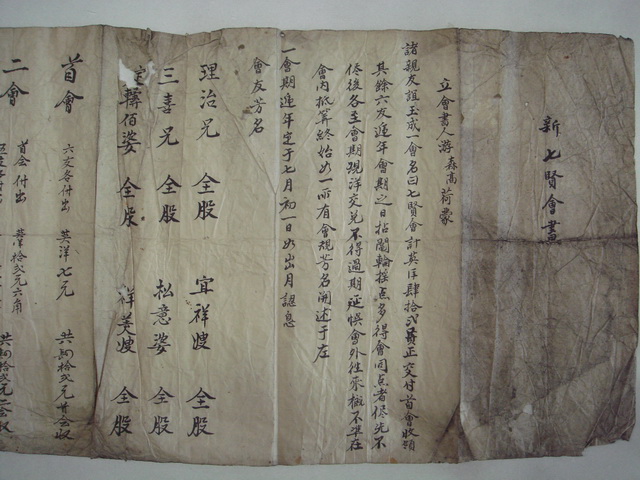 新七賢會書
立會書人游森高荷蒙
諸親友誼玉成一會名曰七賢會計英洋肆拾弍員正交付首會收領
其餘六友遞年會期之日拈鬮輪搖点多得會同点者俟先不
俟後各至會期現洋交兑不得過期延悞會外往來概不準在
會内抵算終始如一所有會規芳名開述于左
一會期遞年定于七月初一日如出月認息
會友芳名
理治兄 仝股 宜祥嫂 仝股
三喜兄 仝股 松意婆 仝股
佰婆 仝股 祥美嫂 仝股
首會 六友各付出 英洋七元 共 拾弍元 收
二會 首會付出 拾弍元六角 共 拾弍元 收